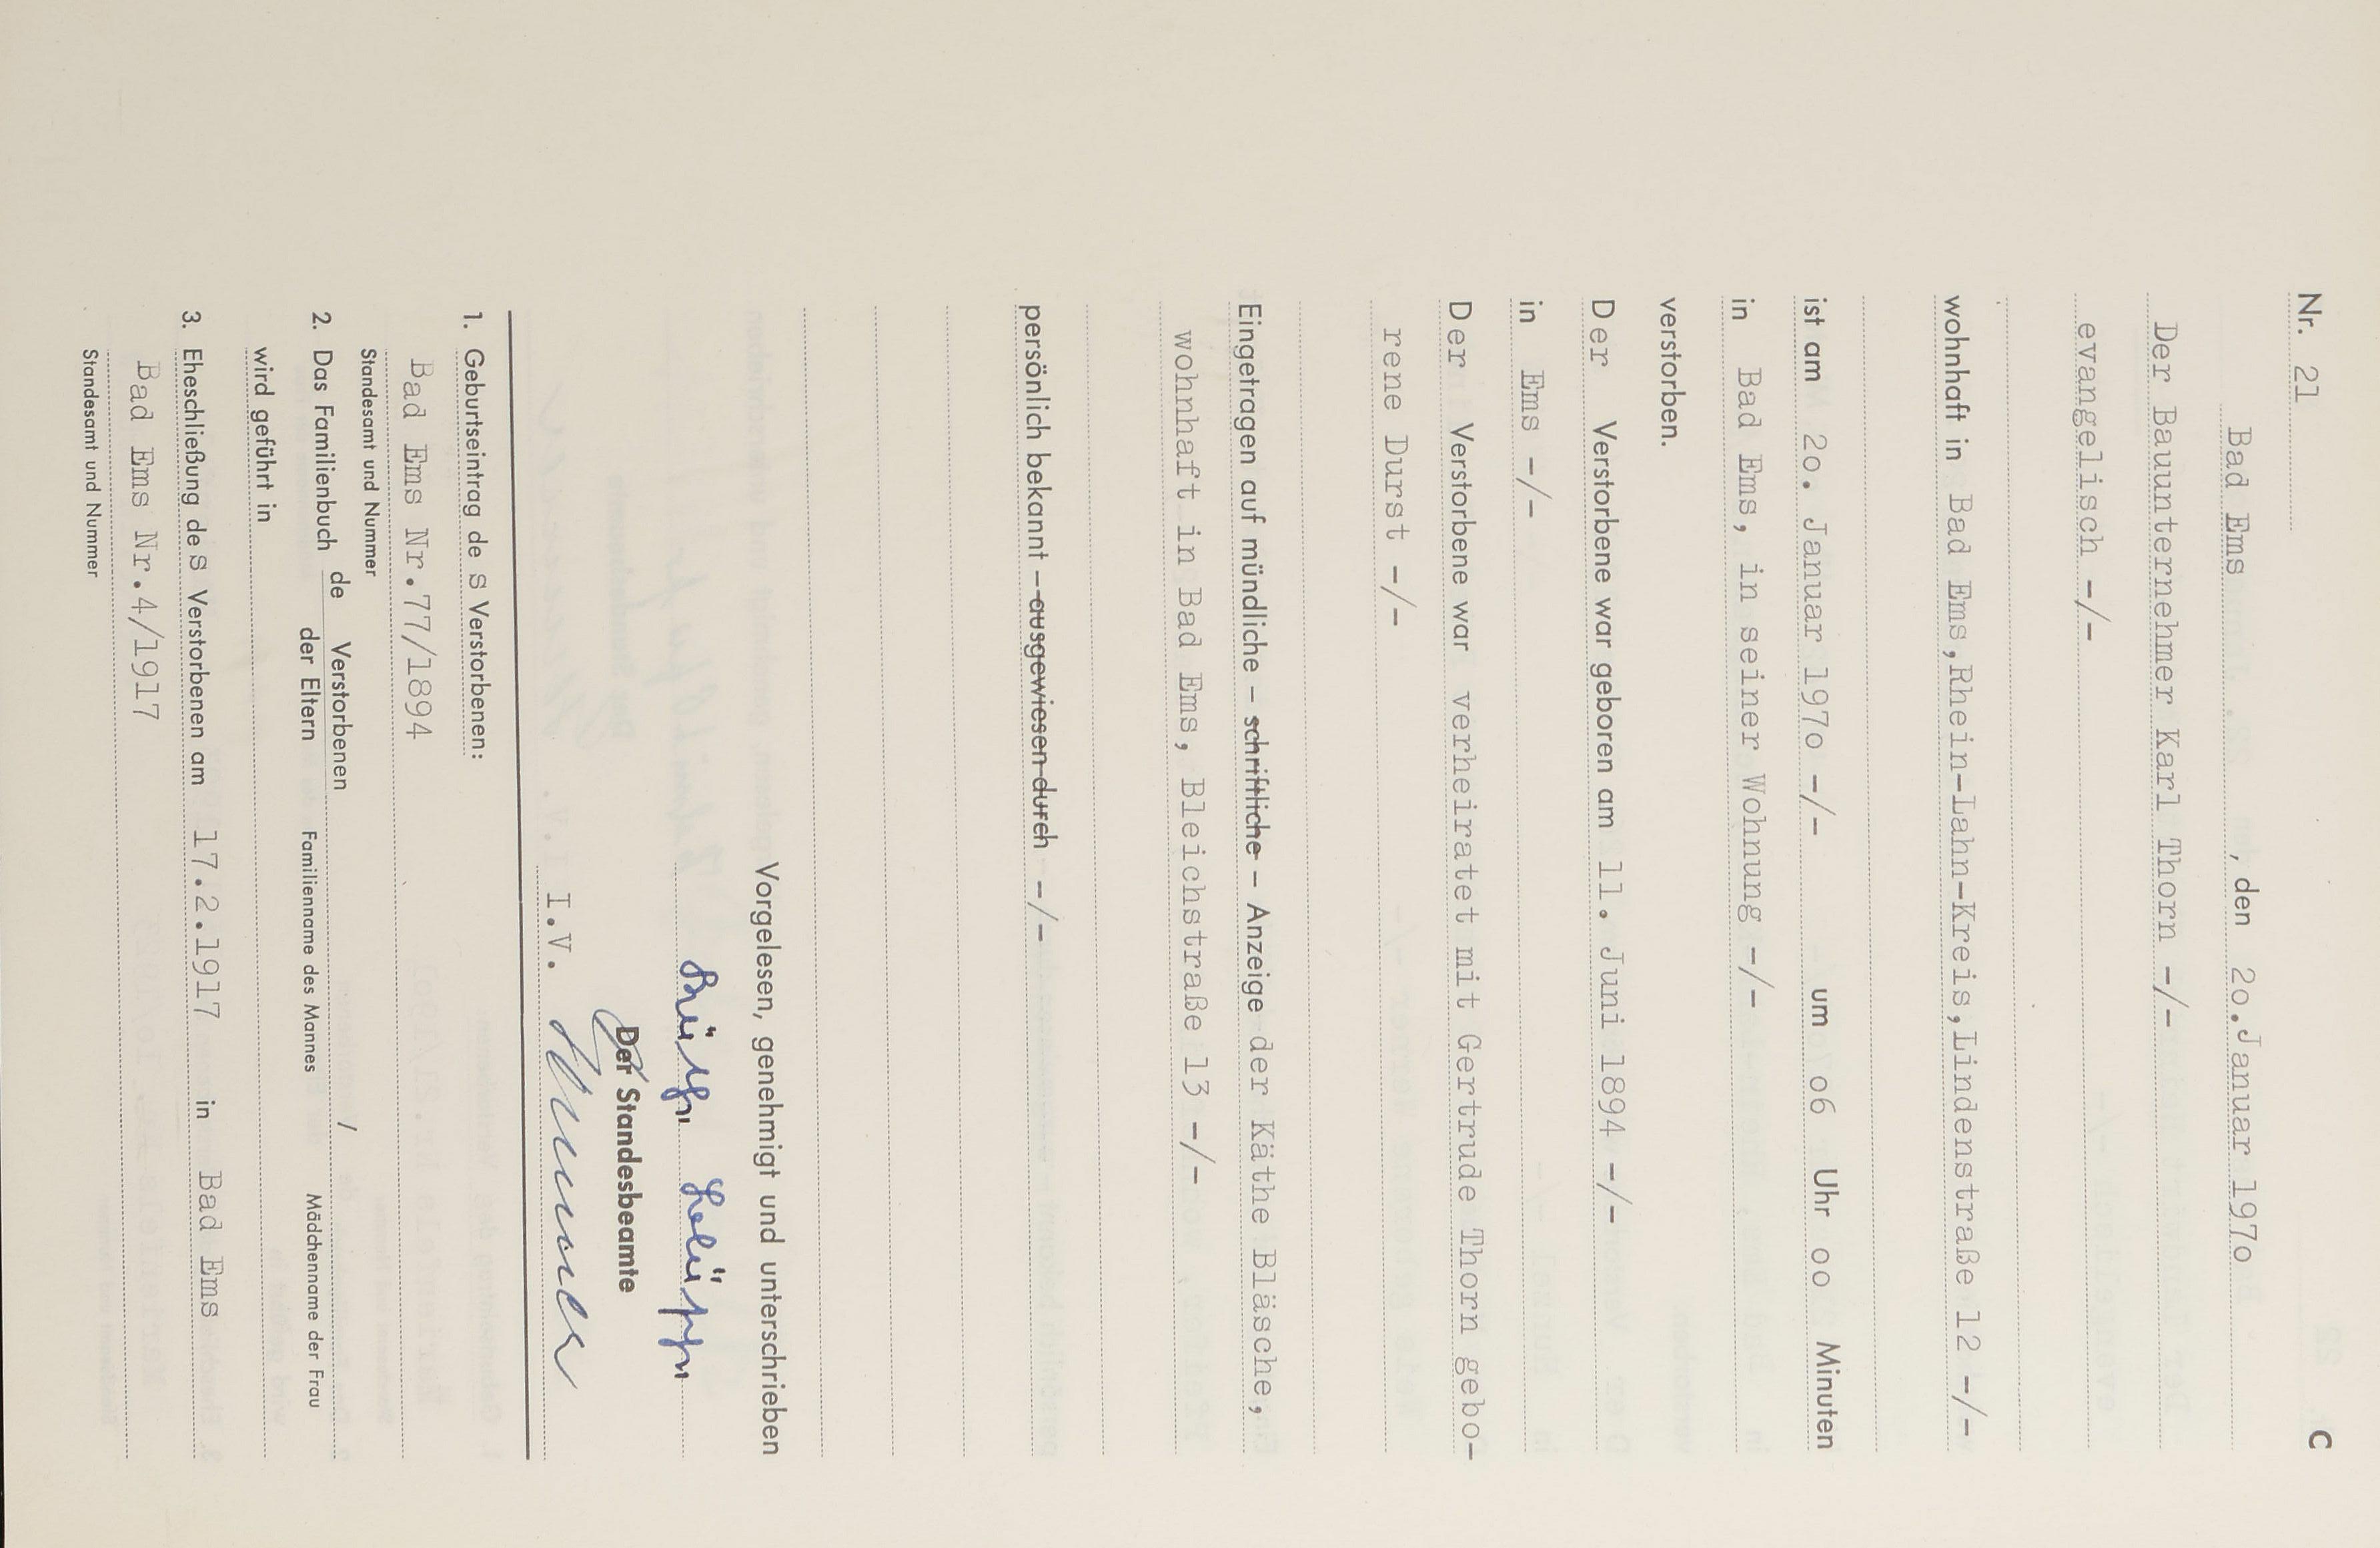 Nr. 21 C
Bad Ems , den 2o.Januar 197o
Der Bauunternehmer Karl Thorn -/-
evangelisch -/-
wohnhaft in Bad Ems,Rhein-Lahn-Kreis,Lindenstraße 12 -/-
ist am 2o. Januar 197o -/- um o6 Uhr oo Minuten
in Bad Ems, in seiner Wohnung -/-
verstorben.
Der Verstorbene war geboren am 11. Juni 1894 -/-
in Ems -/-
Der Verstorbene war verheiratet mit Gertrude Thorn gebo-
rene Durst -/-
Eingetragen auf mündliche - schriftliche - Anzeige der Käthe Bläsche,
wohnhaft in Bad Ems, Bleichstraße 13 -/-
persönlich bekannt - ausgewiesen durch -/-
Vorgelesen, genehmigt und unterschrieben
Der Standesbeamte
I.V.
1. Geburtseintrag des Verstorbenen:
Bad Ems Nr.77/1894
Standesamt und Nummer
2. Das Familienbuch de Verstorbenen /
der Eltern Familienname des Mannes Mädchenname der Frau
wird geführt in
3. Eheschließung des Verstorbenen am 17.2.1917 in Bad Ems
Bad Ems Nr.4/1917
Standesamt und Nummer